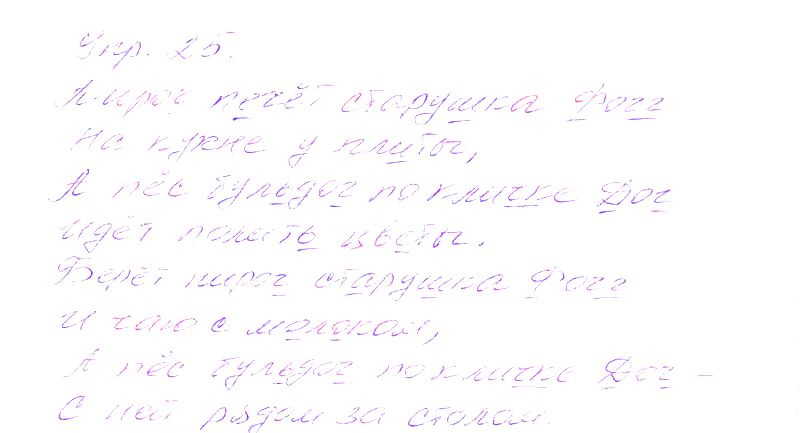 Упр. 25.
Пирог печёт старушка Фогг
На кухне у плиты,
А пёс бульдог по кличке Дог
Идёт полить цветы.
Берёт пирог старушка Фогг
И чаю с молоком,
А пёс бульдог по кличке Дог –
С ней рядом за столом.